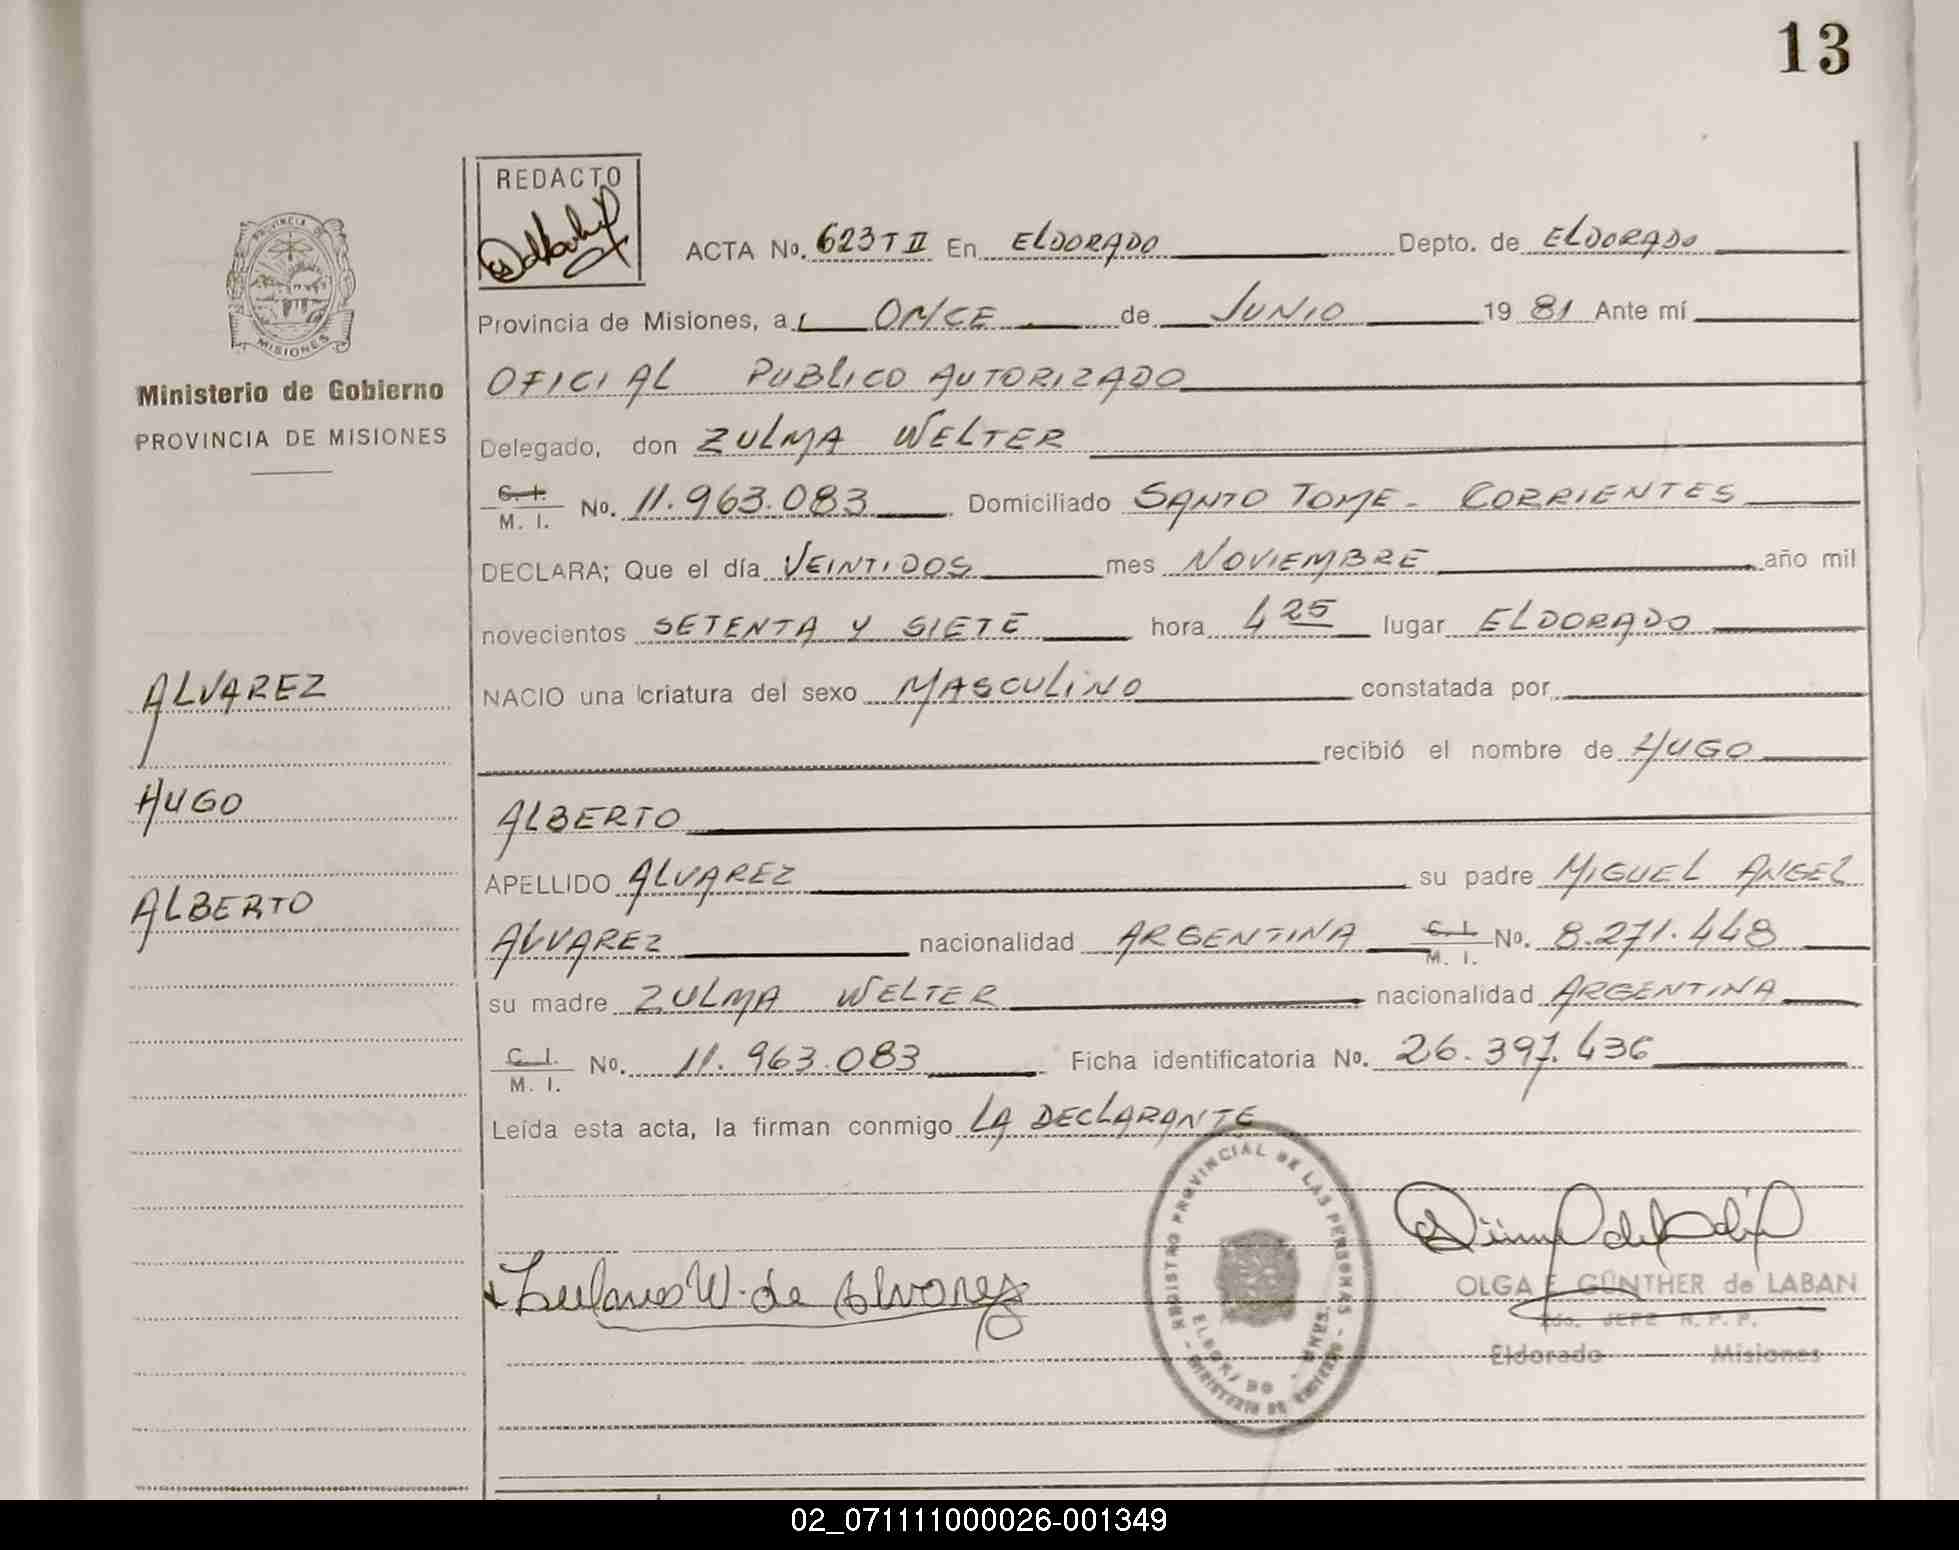 13
REDACTO
ACTA No. 623 T II En ELDORADO Depto. de ELDORADO
Provincia de Misiones, a ONCE de JUNIO 19 81 Ante mí
OFICIAL PUBLICO AUTORIZADO
Delegado, don ZULMA WELTER
C. I. M. I. No. 11.963.083 Domiciliado SANTO TOME - CORRIENTES
DECLARA; Que el día VEINTIDOS mes NOVIEMBRE año mil
novecientos SETENTA Y SIETE hora 4 25 lugar ELDORADO
NACIO una criatura del sexo MASCULINO constatada por
recibió el nombre de HUGO
ALBERTO
APELLIDO ALVAREZ su padre MIGUEL ANGEL
ALVAREZ nacionalidad ARGENTINA C. I. M. I. No. 8.271.448
su madre ZULMA WELTER nacionalidad ARGENTINA
C. I. M. I. No. 11.963.083 Ficha identificatoria No. 26.397.436
Leída esta acta, la firman conmigo LA DECLARANTE
W. de Alvarez
OLGA E. GÜNTHER de LABAN
2do. JEFE R. P. P.
Eldorado Misiones
REGISTRO PROVINCIAL DE LAS PERSONAS
ELDORADO
MNES.
MINISTERIO DE GOBIERNO
PROVINCIA DE
MISIONES
Ministerio de Gobierno
PROVINCIA DE MISIONES
ALVAREZ
HUGO
ALBERTO
02_071111000026-001349